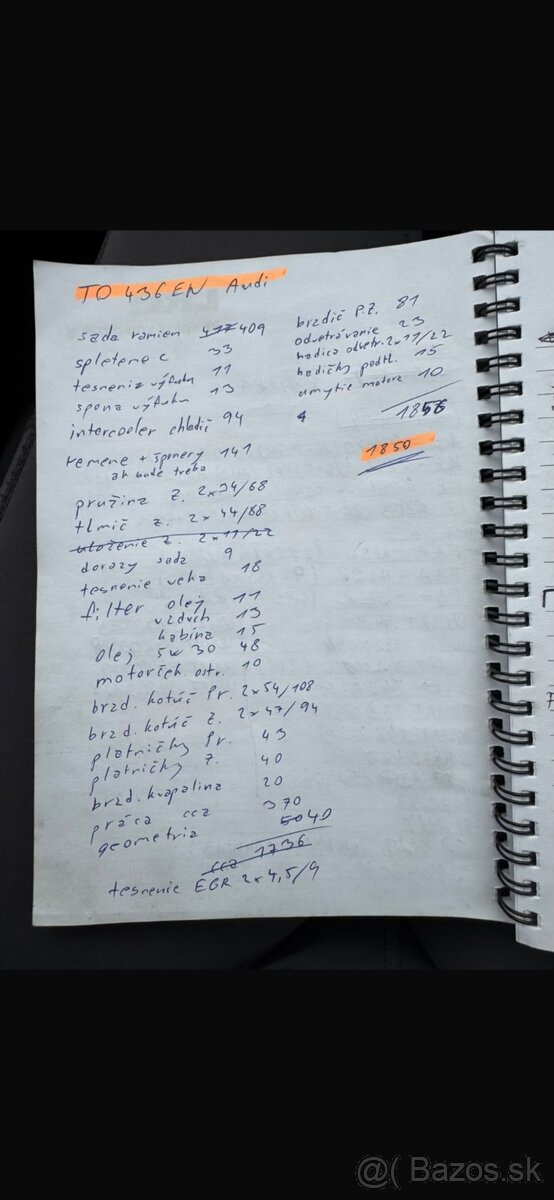 TO 436EN Audi
sada ramien 417 409
spletene c 33
tesnenia výfuku 11
spona výfuku 13
intercooler chladič 94
remene + šponery 141
ak bude treba
pružina Z. 2x34/68
tlmič Z. 2x44/88
uloženie Z. 2x11/22
dorazy sada 9
tesnenie veka 18
filter olej 11
vzduch 13
kabína 15
olej 5w30 48
motorček ostr. 10
brzd. kotúč Pr. 2x54/108
brzd. kotúč Z. 2x47/94
platničky Pr. 43
platničky Z. 40
brzd. kvapalina 20
práca cca 370
geometria 40
cca 1736
tesnenie EGR 2x4,5/9
brzdič P.Z. 81
odvetrávanie 23
hadica odvetr. 2x11/22
hadičky podtl. 15
umytie motora 10
1856
1850
@( Bazos.sk